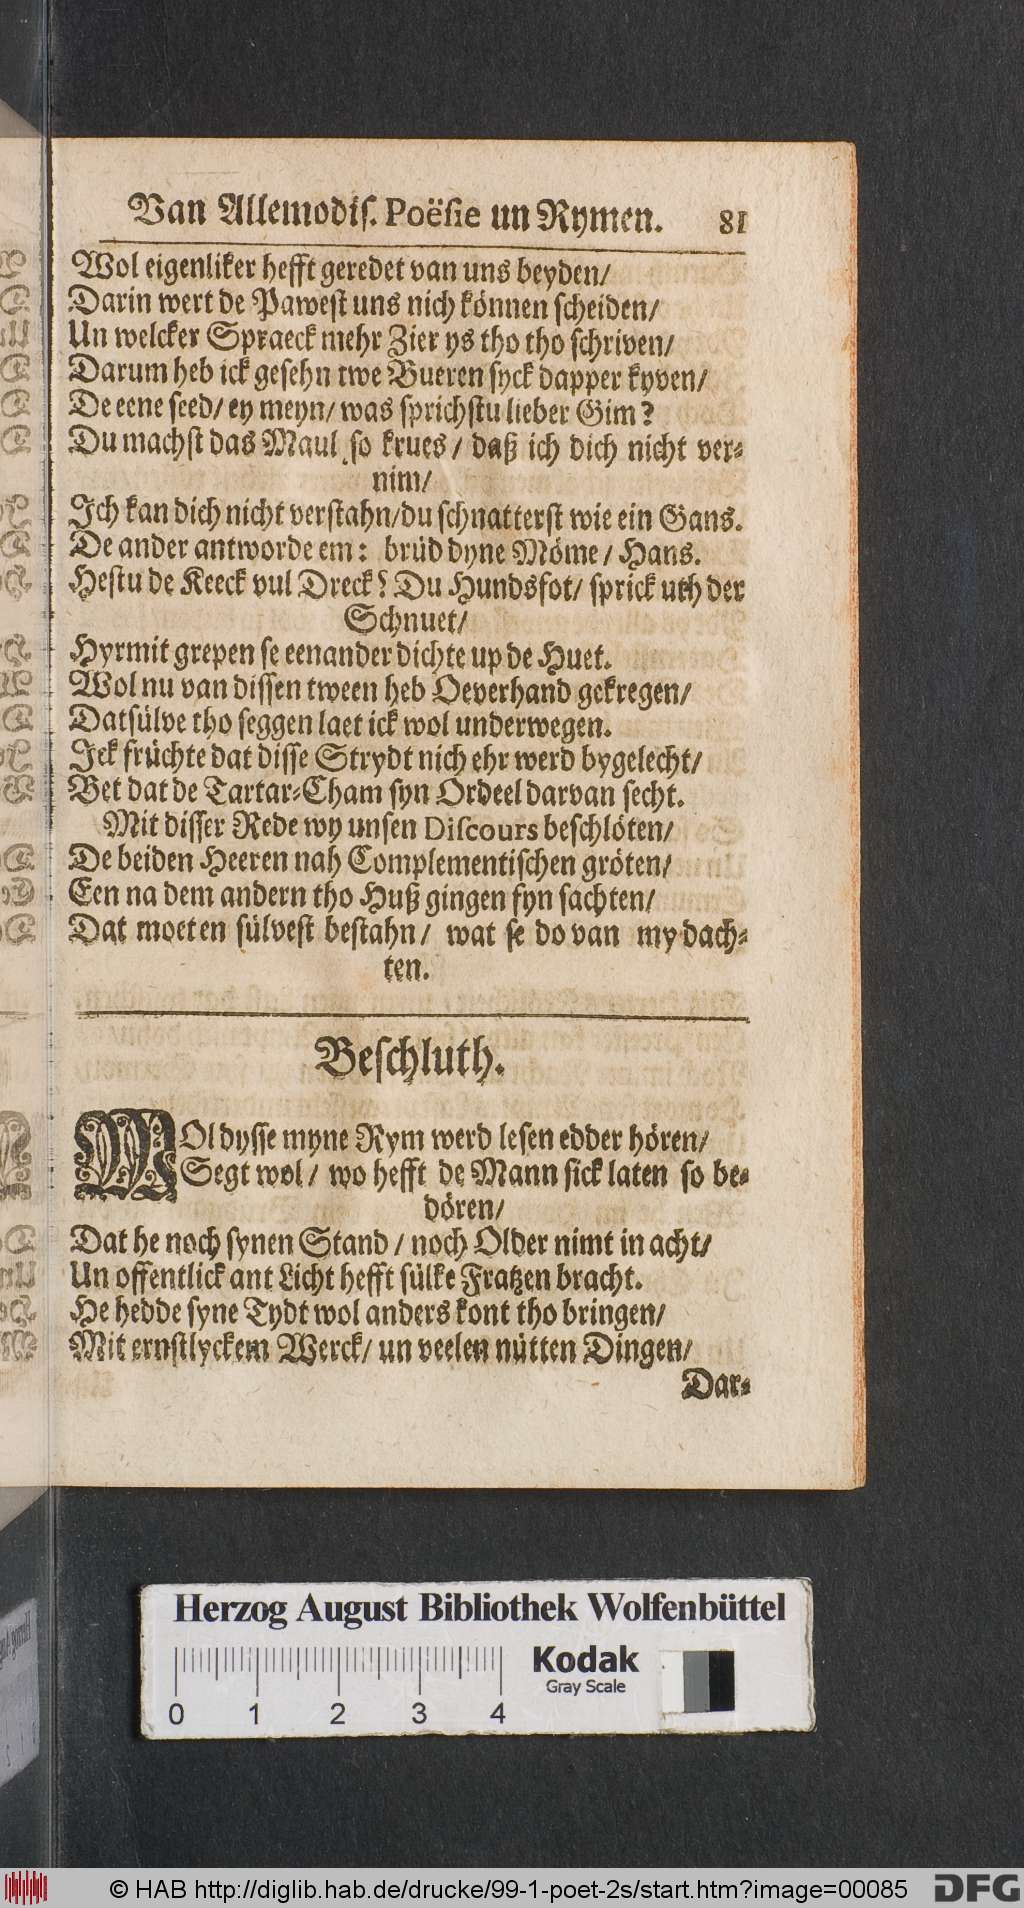 Van Allemodis. Poësie un Rymen. 81
Wol eigenliker hefft geredet van uns beyden/
Darin wert de Pawest uns nich können scheiden/
Un welcker Spraeck mehr Zier ys tho tho schriven/
Darum heb ick gesehn twe Bueren syck dapper kyven/
De eene seed/ ey meyn/ was sprichstu lieber Gim?
Du machst das Maul so krues/ daß ich dich nicht ver-
nim/
Ich kan dich nicht verstahn/du schnatterst wie ein Gans.
De ander antworde em: brüd dyne Möme/ Hans.
Hestu de Keeck vul Dreck? Du Hundsfot/ sprick uth der
Schnuet/
Hyrmit grepen se eenander dichte up de Huet.
Wol nu van dissen tween heb Oeverhand gekregen/
Datsülve tho seggen laet ick wol underwegen.
Ick früchte dat disse Strydt nich ehr werd bygelecht/
Bet dat de Tartar-Cham syn Ordeel darvan secht.
Mit disser Rede wy unsen Discours beschlöten/
De beiden Heeren nah Complementischen gröten/
Een na dem andern tho Huß gingen fyn sachten/
Dat moeten sülvest bestahn/ wat se do van my dach-
ten.
Beschluth.
WOl dysse myne Rym werd lesen edder hören/
Segt wol/ wo hefft de Mann sick laten so be-
dören/
Dat he noch synen Stand/ noch Older nimt in acht/
Un offentlick ant Licht hefft sülke Fratzen bracht.
He hedde syne Tydt wol anders kont tho bringen/
Mit ernstlyckem Werck/ un veelen nütten Dingen/
Dar-
Herzog August Bibliothek Wolfenbüttel
Kodak
Gray Scale
0 1 2 3 4
© HAB http://diglib.hab.de/drucke/99-1-poet-2s/start.htm?image=00085 DFG